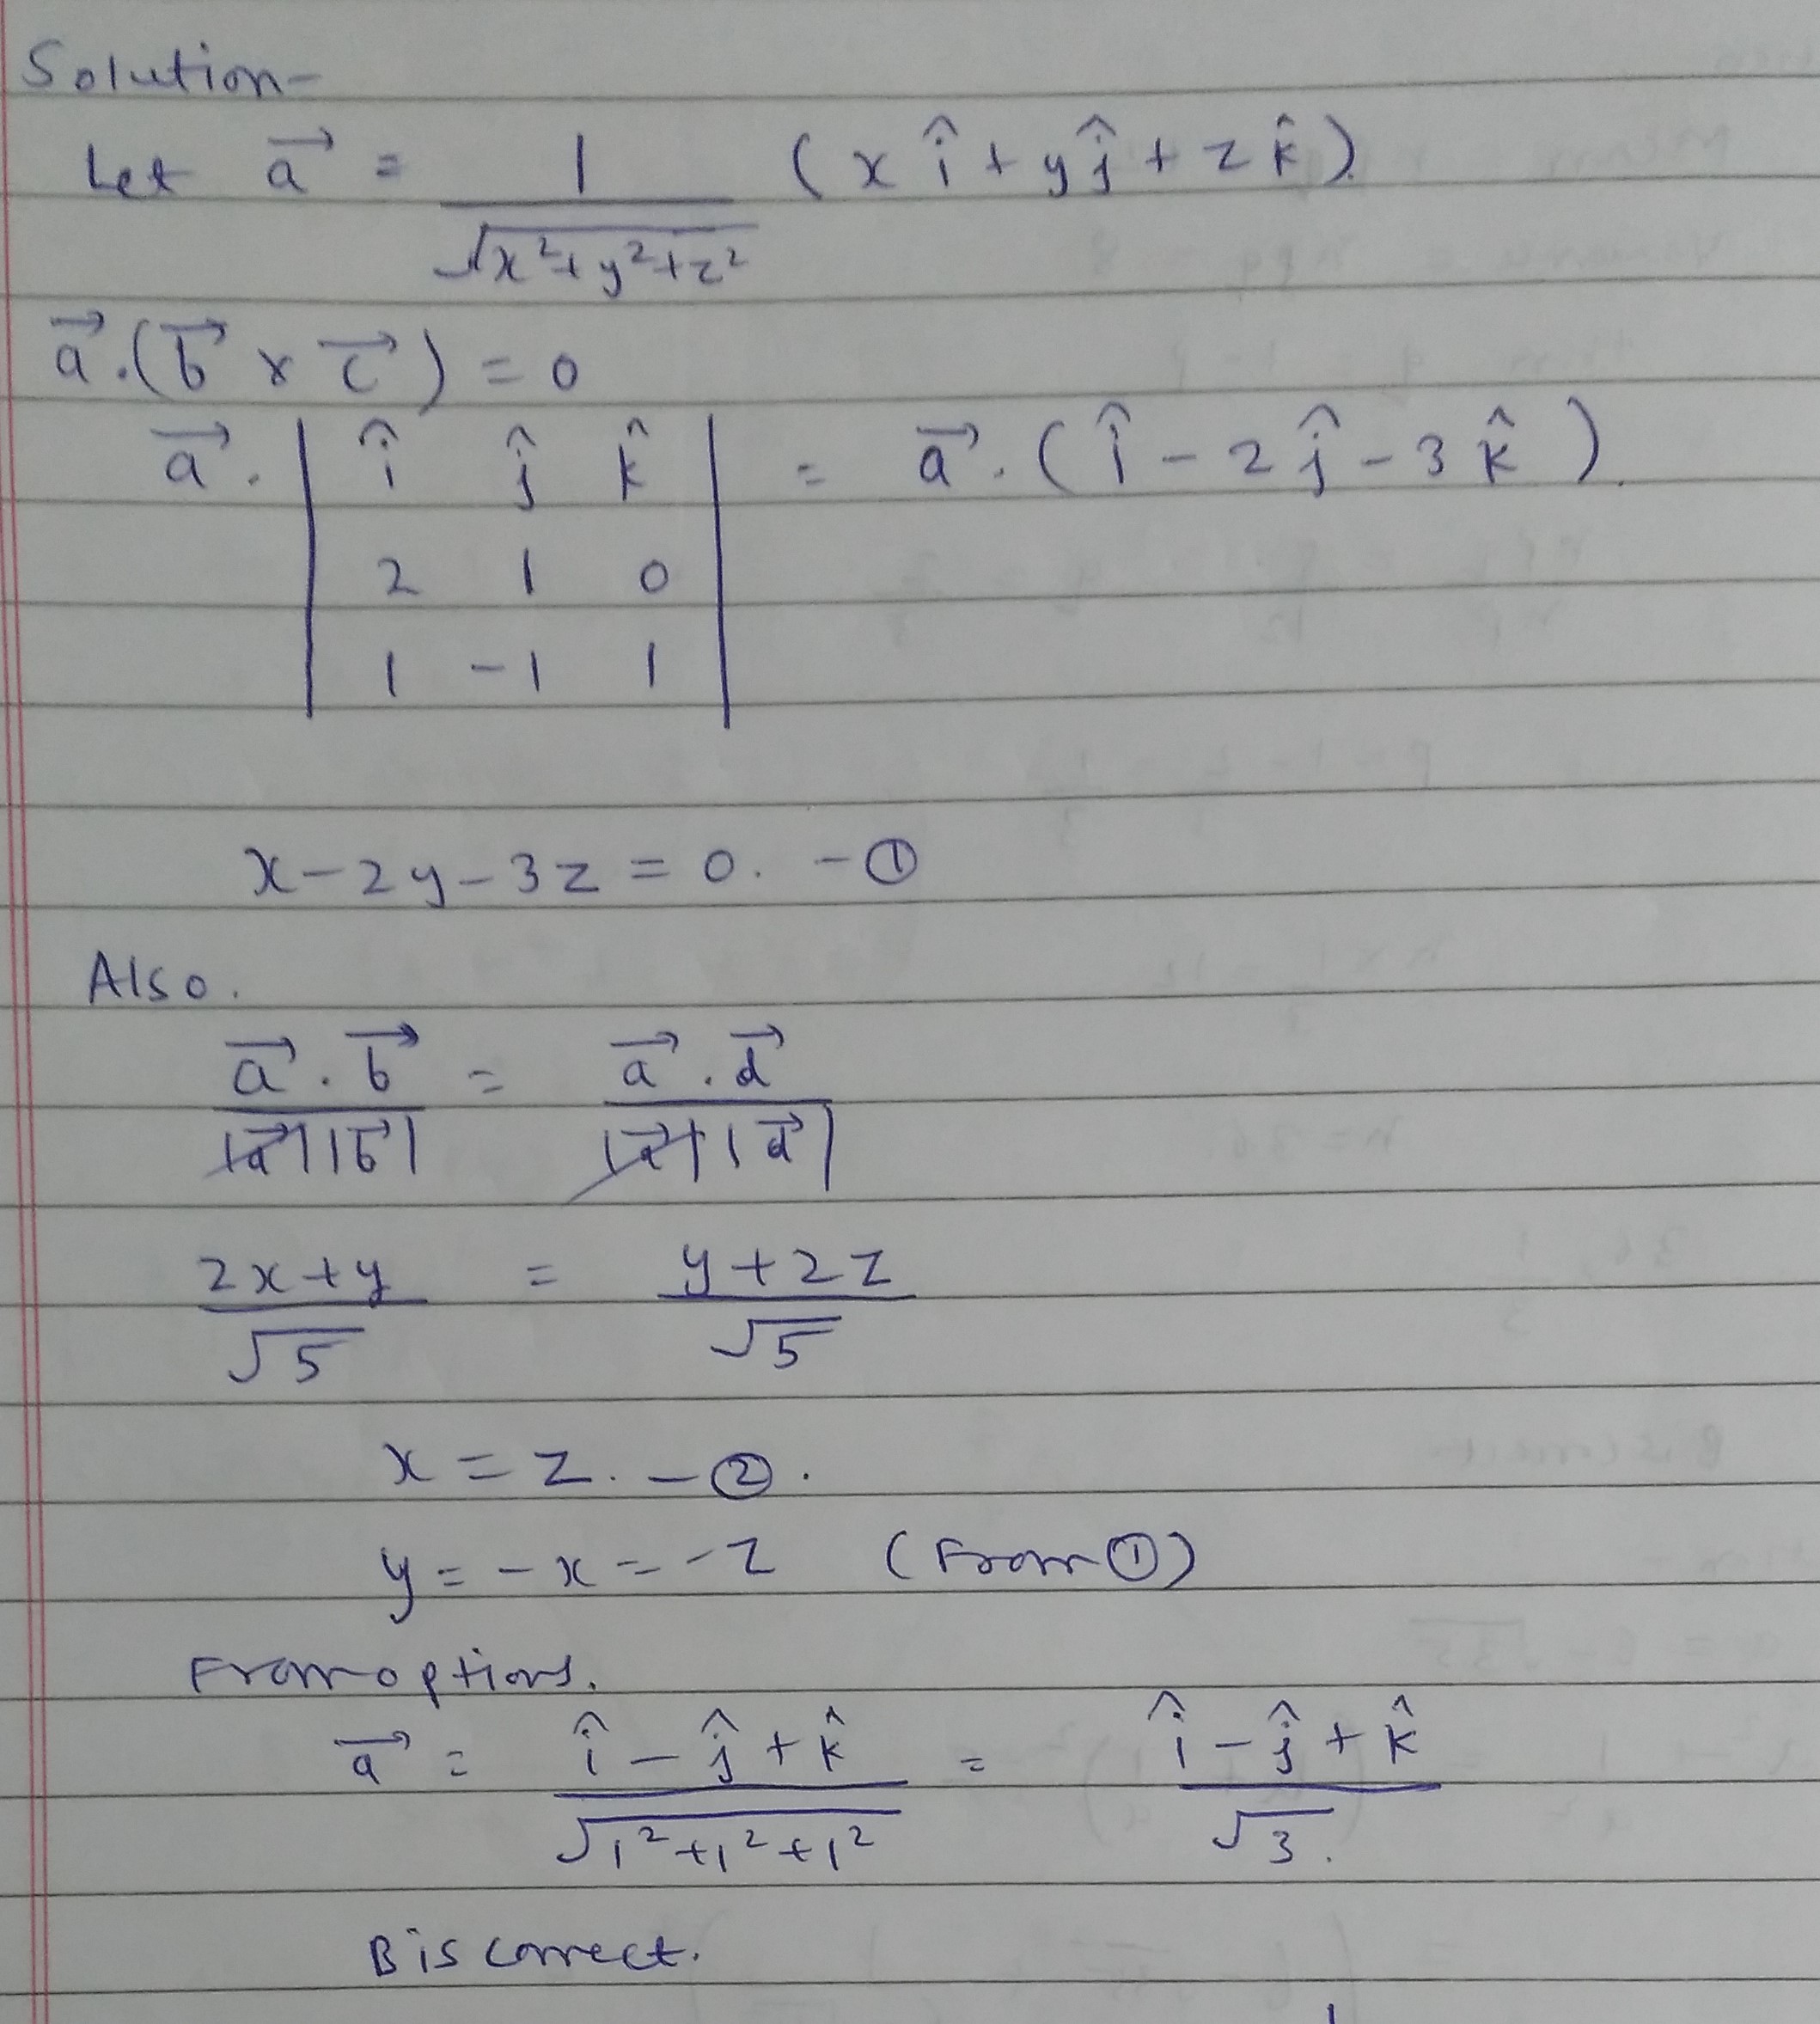 Solution-
Let a⃗ = 1/√(x²+y²+z²) (x î + y ĵ + z k̂).
a⃗.(b⃗ × c⃗) = 0
a⃗. | î ĵ k̂ | = a⃗. (î - 2ĵ - 3k̂).
2 1 0
1 -1 1
x - 2y - 3z = 0. - ①
Also.
a⃗.b⃗ / |a⃗||b⃗| = a⃗.d⃗ / |a⃗||d⃗|
(2x+y)/√5 = (y+2z)/√5
x = z. - ②.
y = -x = -z (From ①)
From options.
a⃗ = (î - ĵ + k̂)/√(1²+1²+1²) = (î - ĵ + k̂)/√3.
B is correct.